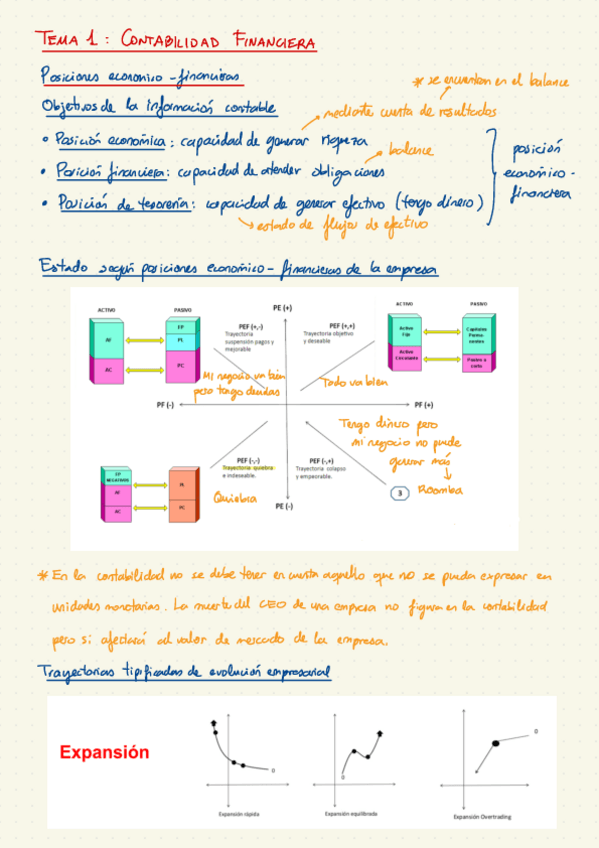 TEMA 1: CONTABILIDAD FINANCIERA
Posiciones económico-financieras
* se encuentran en el balance
Objetivos de la información contable
mediante cuenta de resultados
• Posición económica: capacidad de generar riqueza
balance
• Posición financiera: capacidad de atender obligaciones
• Posición de tesorería: capacidad de generar efectivo (tengo dinero)
estado de flujos de efectivo
posición
económico-
financiera
Estado según posiciones económico-financieras de la empresa
ACTIVO PASIVO
AF
AC
FP
PL
PC
PE (+)
PEF (+,-)
Trayectoria
suspensión pagos y
mejorable
PEF (+,+)
Trayectoria objetivo
y deseable
ACTIVO PASIVO
Activo
Fijo
Activo
Circulante
Capitales
Perma
nentes
Pasivo a
corto
Mi negocio va bien
pero tengo deudas
Todo va bien
PF (-)
PF (+)
Tengo dinero pero
mi negocio no puede
generar más
Roomba
FP
NEGATIVOS
AF
AC
PL
PC
PEF (-,-)
Trayectoria quiebra
e indeseable.
Quiebra
PEF (-,+)
Trayectoria colapso
y empeorable.
3
PE (-)
* En la contabilidad no se debe tener en cuenta aquello que no se pueda expresar en
unidades monetarias. La muerte del CEO de una empresa no figura en la contabilidad
pero si afectará al valor de mercado de la empresa.
Trayectorias tipificadas de evolución empresarial
Expansión
0
0
0
Expansión rápida
Expansión equilibrada
Expansión Overtrading